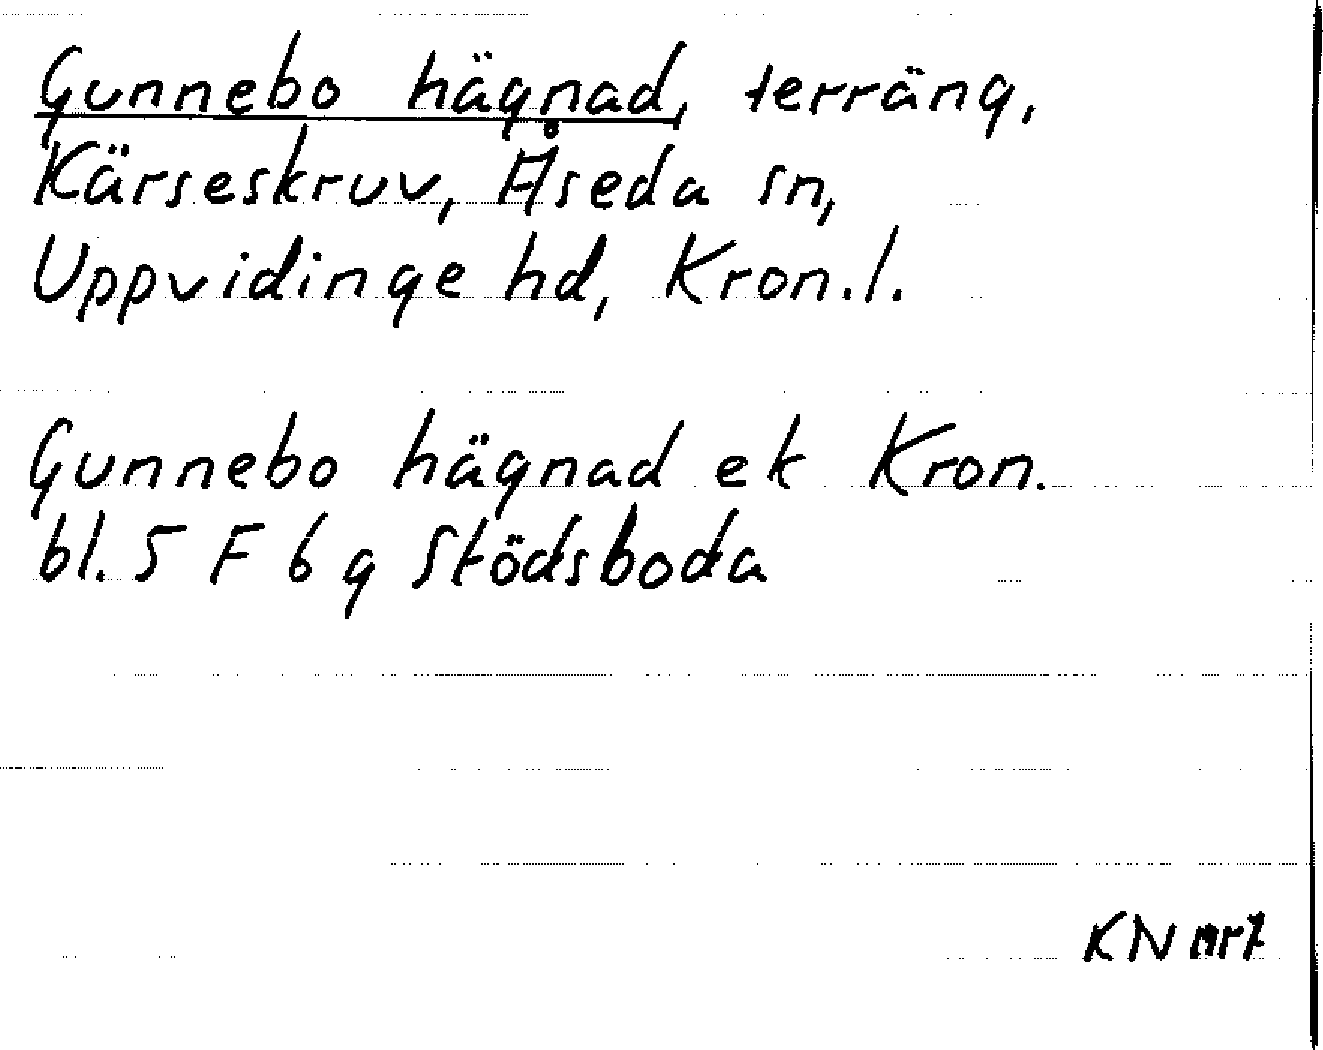 Gunnebo hägnad, terräng,
Kärseskruv, Åseda sn,
Uppvidinge hd, Kron.l.
Gunnebo hägnad ek Kron.
bl. 5 F 6 g Stödsboda
KN